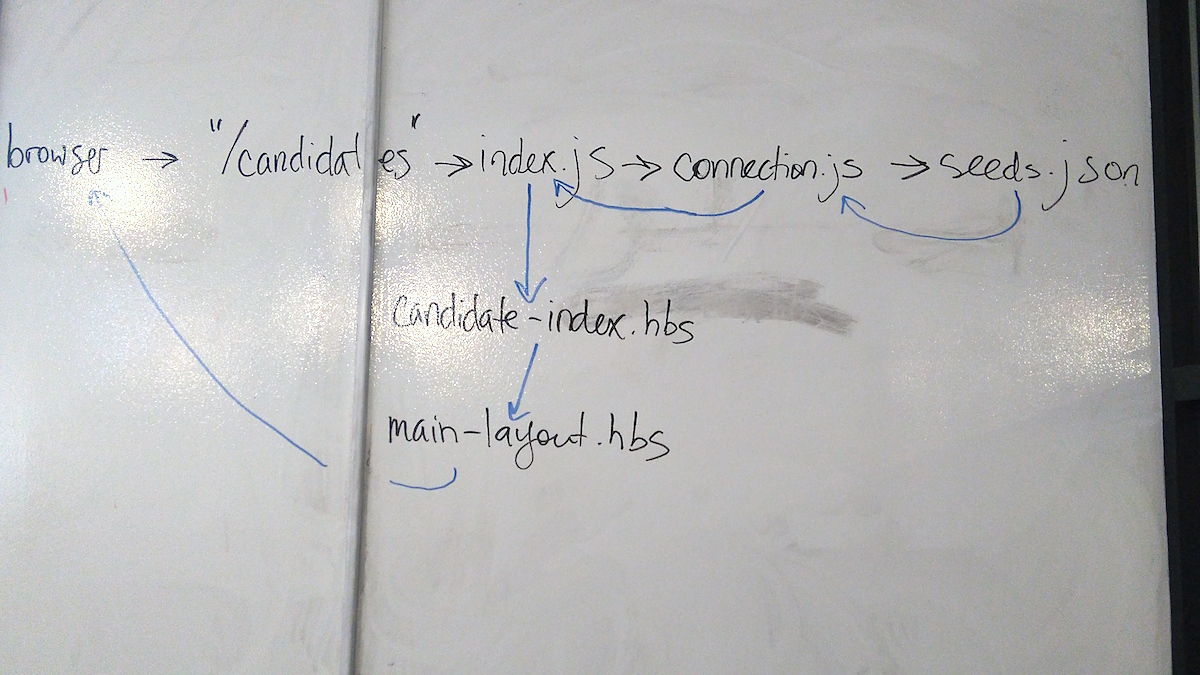 browser → "/candidates" → index.js → connection.js → seeds.json
candidate-index.hbs
main-layout.hbs